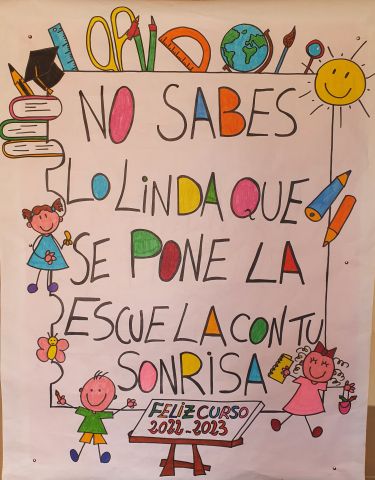 NO SABES
LO LiNDA QUE
SE PONE LA
ESCUELA CON TU
SONRISA
FELIZ CURSO
2022-2023